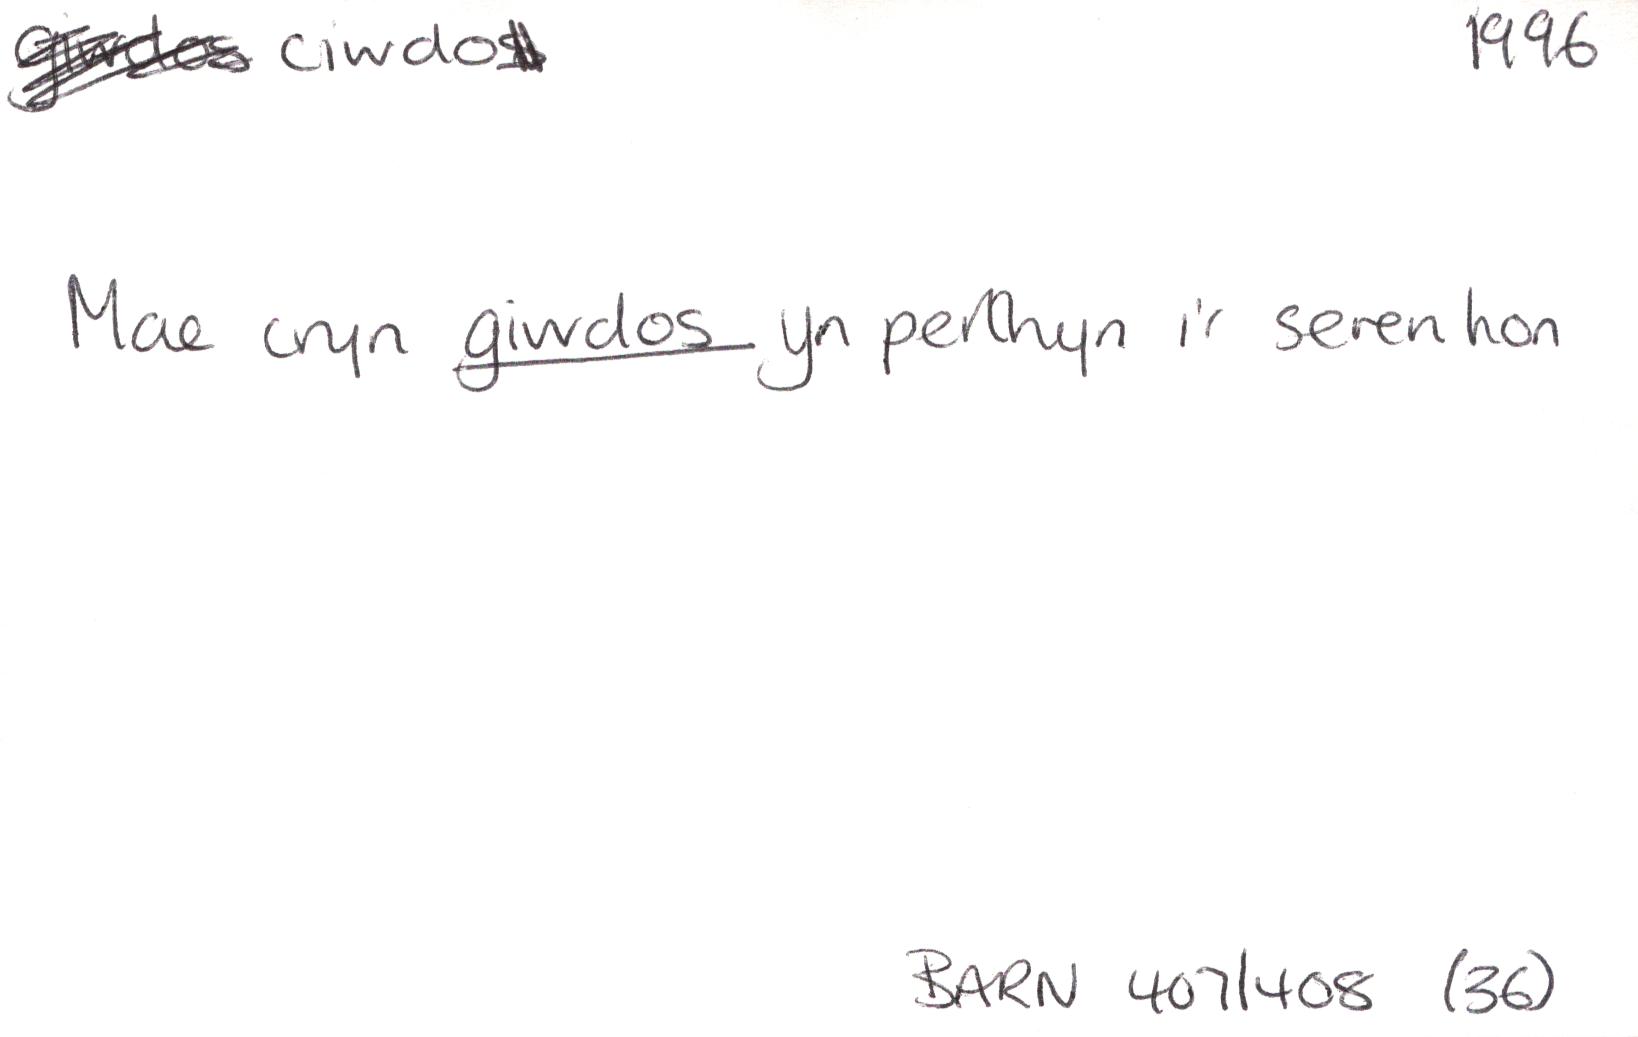 giwdos ciwdos 1996
Mae cryn giwdos yn perthyn i'r seren hon
BARN 407/408 (36)